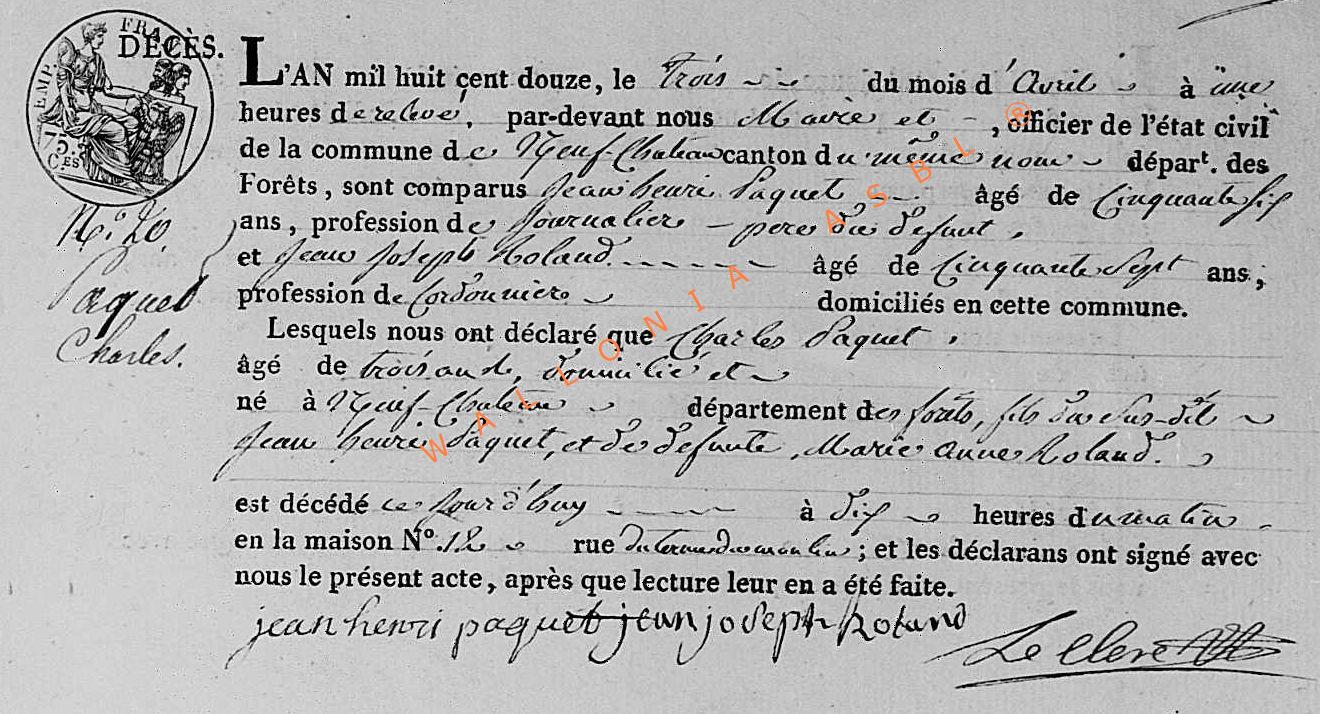 FRA
DÉCÈS.
EMP.
75.
CES
L'AN mil huit cent douze, le trois du mois d'Avril à une
heures de relevé, par-devant nous Maire et , officier de l'état civil
de la commune de Neuf-Chateau canton du même nom dépar^t. des
Forêts, sont comparus Jean henri Paquet âgé de Cinquante six
ans, profession de Journalier pere du defunt,
et Jean Joseph Roland âgé de Cinquante Sept ans,
profession de Cordonnier domiciliés en cette commune.
N.° 20.
Paquet
Charles.
Lesquels nous ont déclaré que Charles Paquet,
âgé de trois ans, domicilié et
né à Neuf-Chateau département des forêts, fils du sus-dit
Jean henri Paquet, et de defunte, Marie Anne Roland.
est décédé ce jourd'huy à dix heures du matin
en la maison N°. 12 rue du moulin; et les déclarans ont signé avec
nous le présent acte, après que lecture leur en a été faite.
jean henri paquet jean joseph Roland
Leclerc
WALLONIA ASBL ®